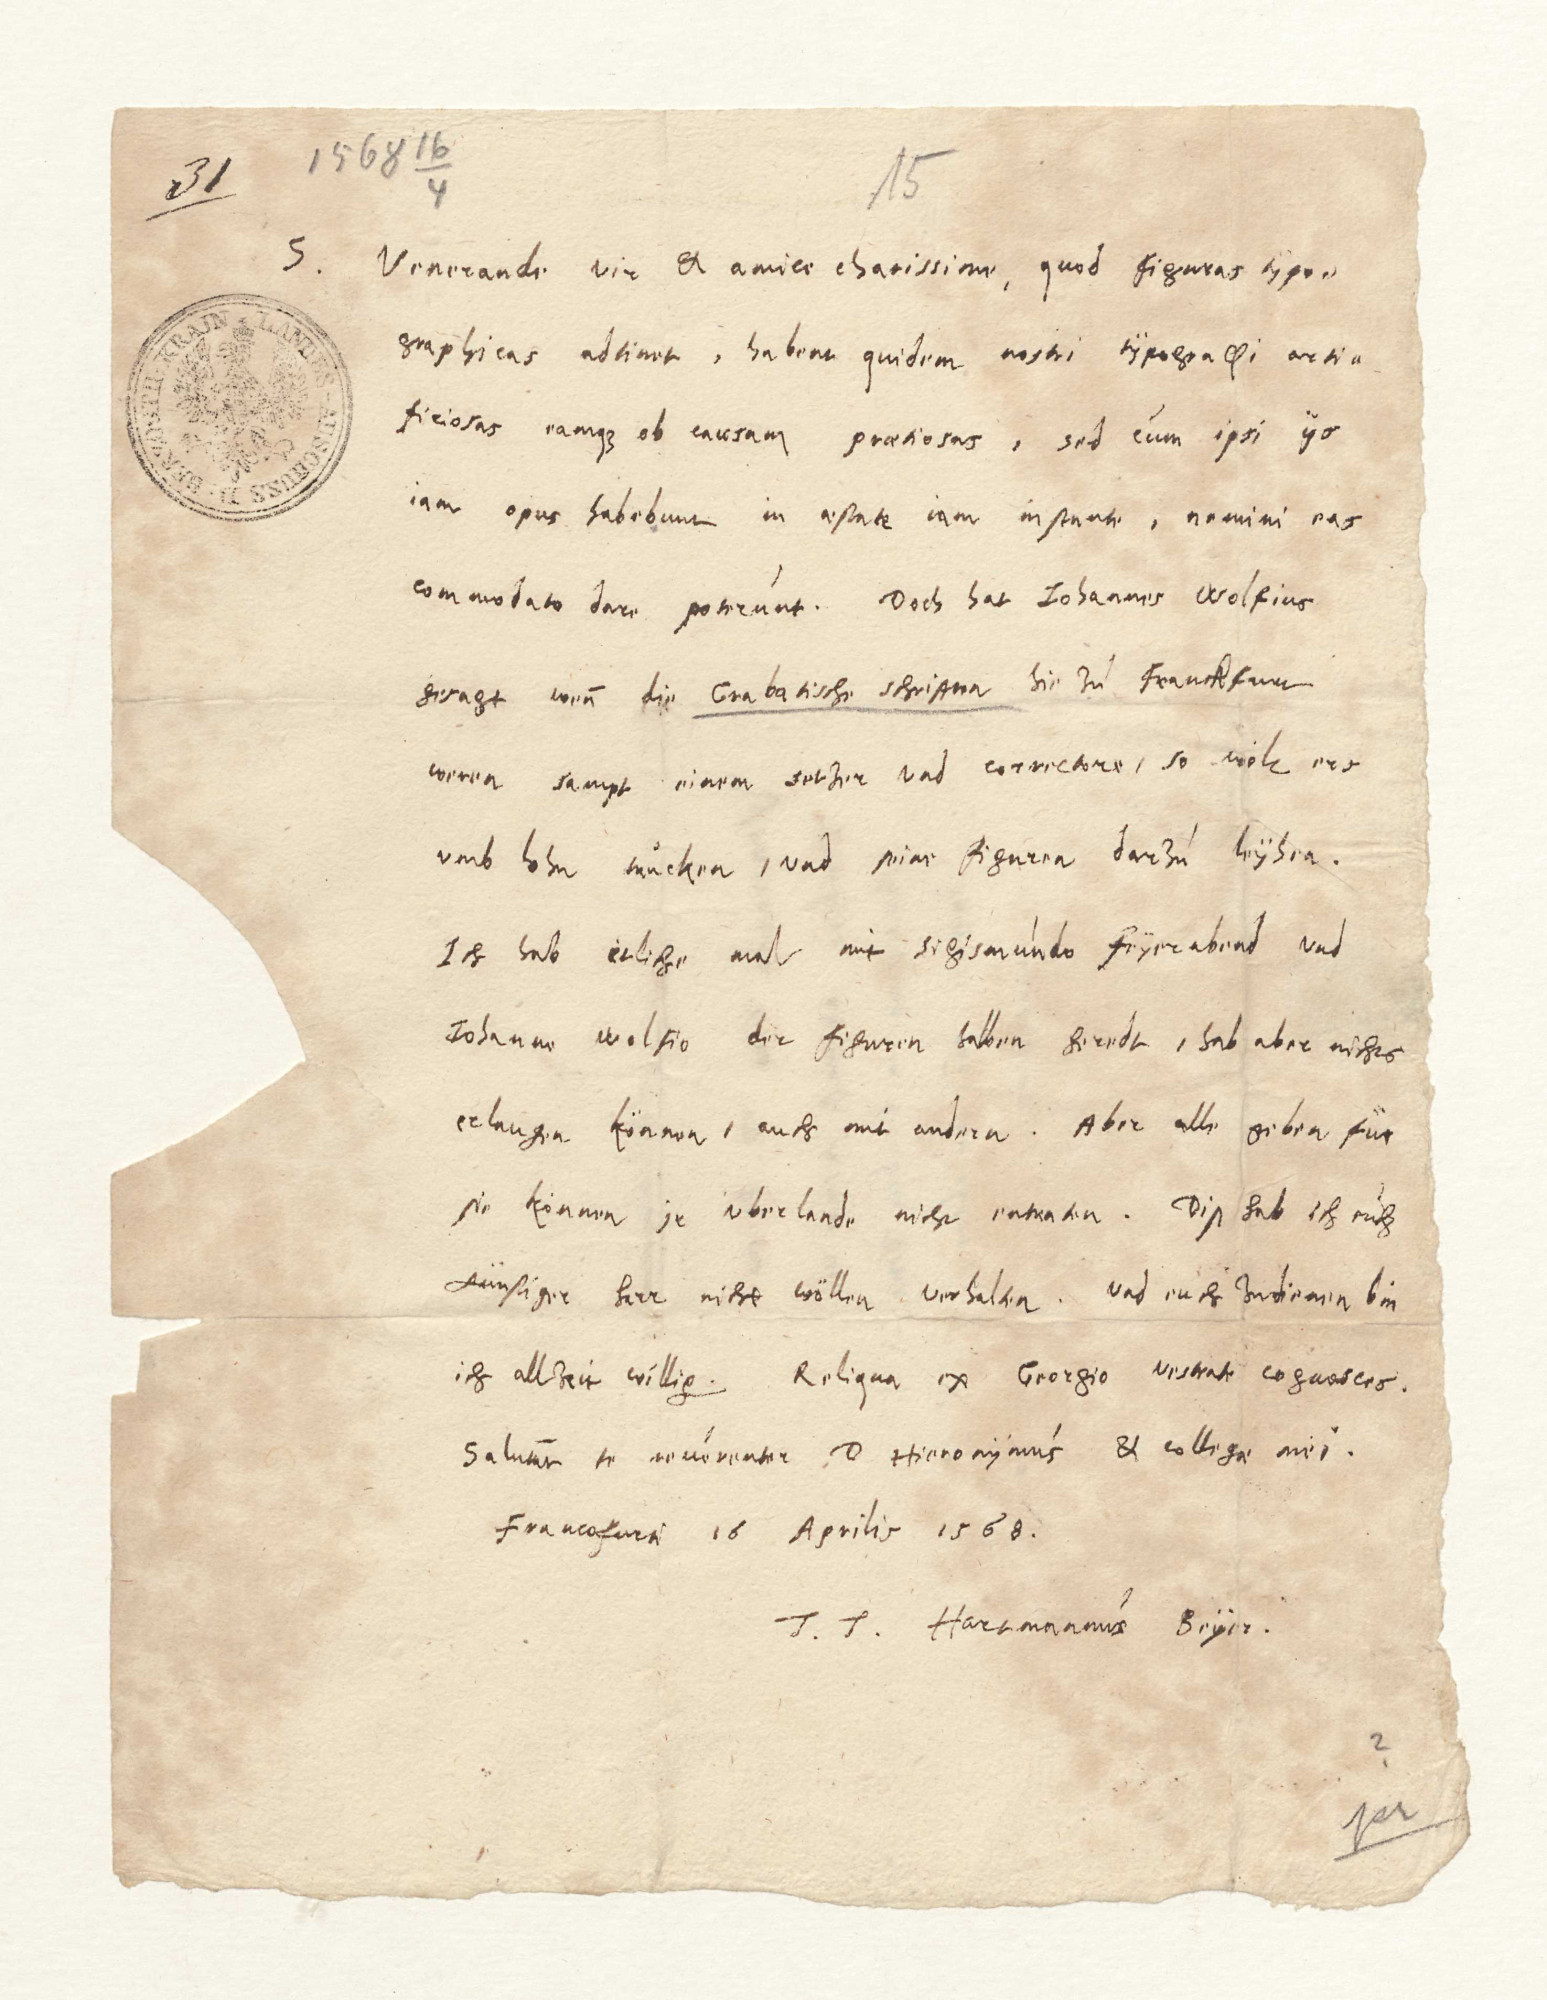 31
1568 16/4
15
S. Venerande vir & amice charissime, quod figuras typo-
graphicas adtinet, habent quidem nostri typographi arti-
ficiosas eamq3 ob causam praetiosas, sed cum ipsi ijs
iam opus habebunt in aestate iam instante, nemini eas
commodato dare poterunt. Doch hat Iohannes Wolfius
gesagt wen̄ die Crabatische schrifften hie zu Franckfurt
weren sampt einem setzer vnd correctore, so wolt ers
vmb lohn trucken, vnd seine figuren darzu leyhen.
Ich hab etliche mal mit Sigismundo Feyerabend vnd
Iohanne Wolfio der figuren halben geredt, hab aber nichts
erlangen können, auch mit andern. Aber alle geben für
sie können ir vberlande nicht entraten. Diß hab ich euch
günstiger herr nicht wöllen verhalten. Vnd euch zudienen bin
ich allzeit willig. Reliqua ex Georgio vestrate cognosces.
Salutāt te reuerenter D Hieronymus & collegae mei.
Francofurti 16 Aprilis 1568.
T. T. Hartmannus Beyer.
LANDES-AUSSCHUSS D. HERZOGTH. KRAIN
2